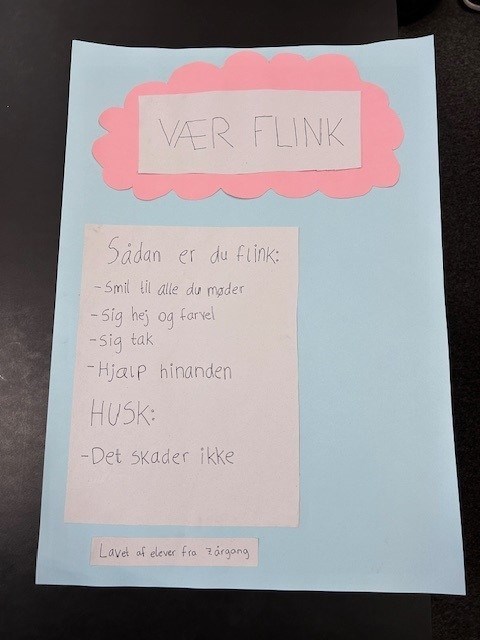 VÆR FLINK
Sådan er du flink:
- Smil til alle du møder
- Sig hej og farvel
- Sig tak
- Hjælp hinanden
HUSK:
- Det skader ikke
Lavet af elever fra 7 årgang